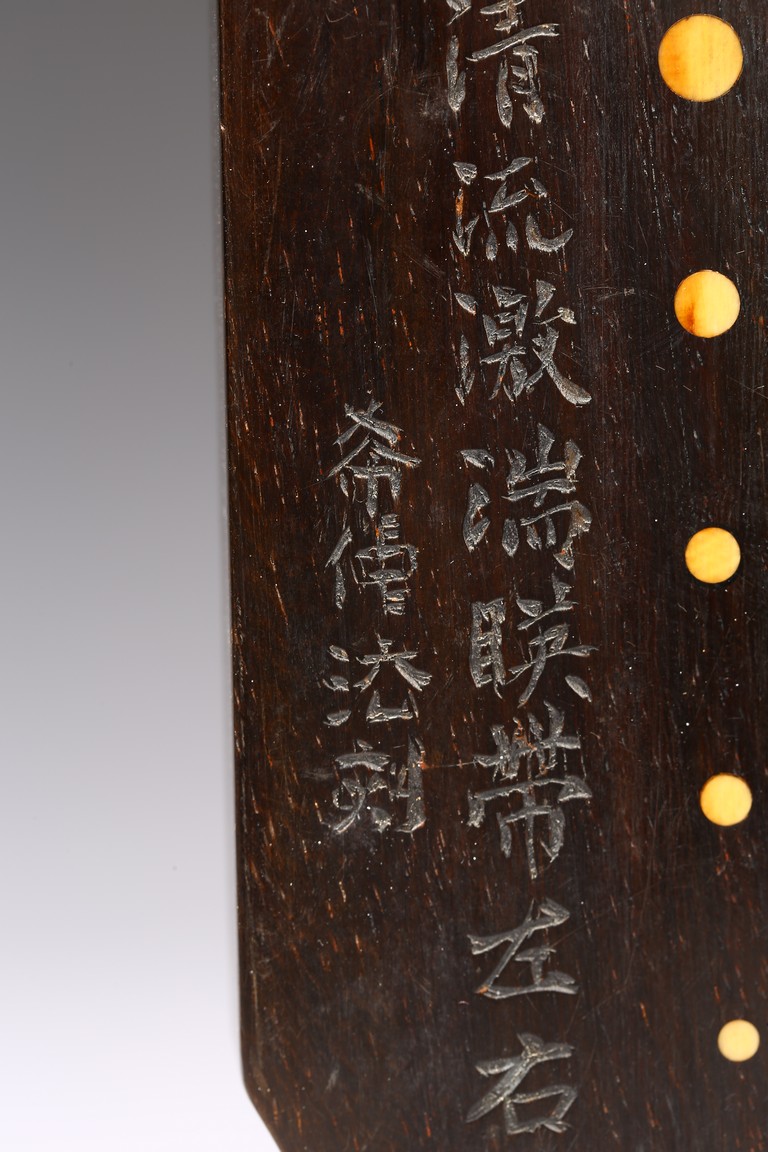 清流激湍暎帶左右
希僧法刻